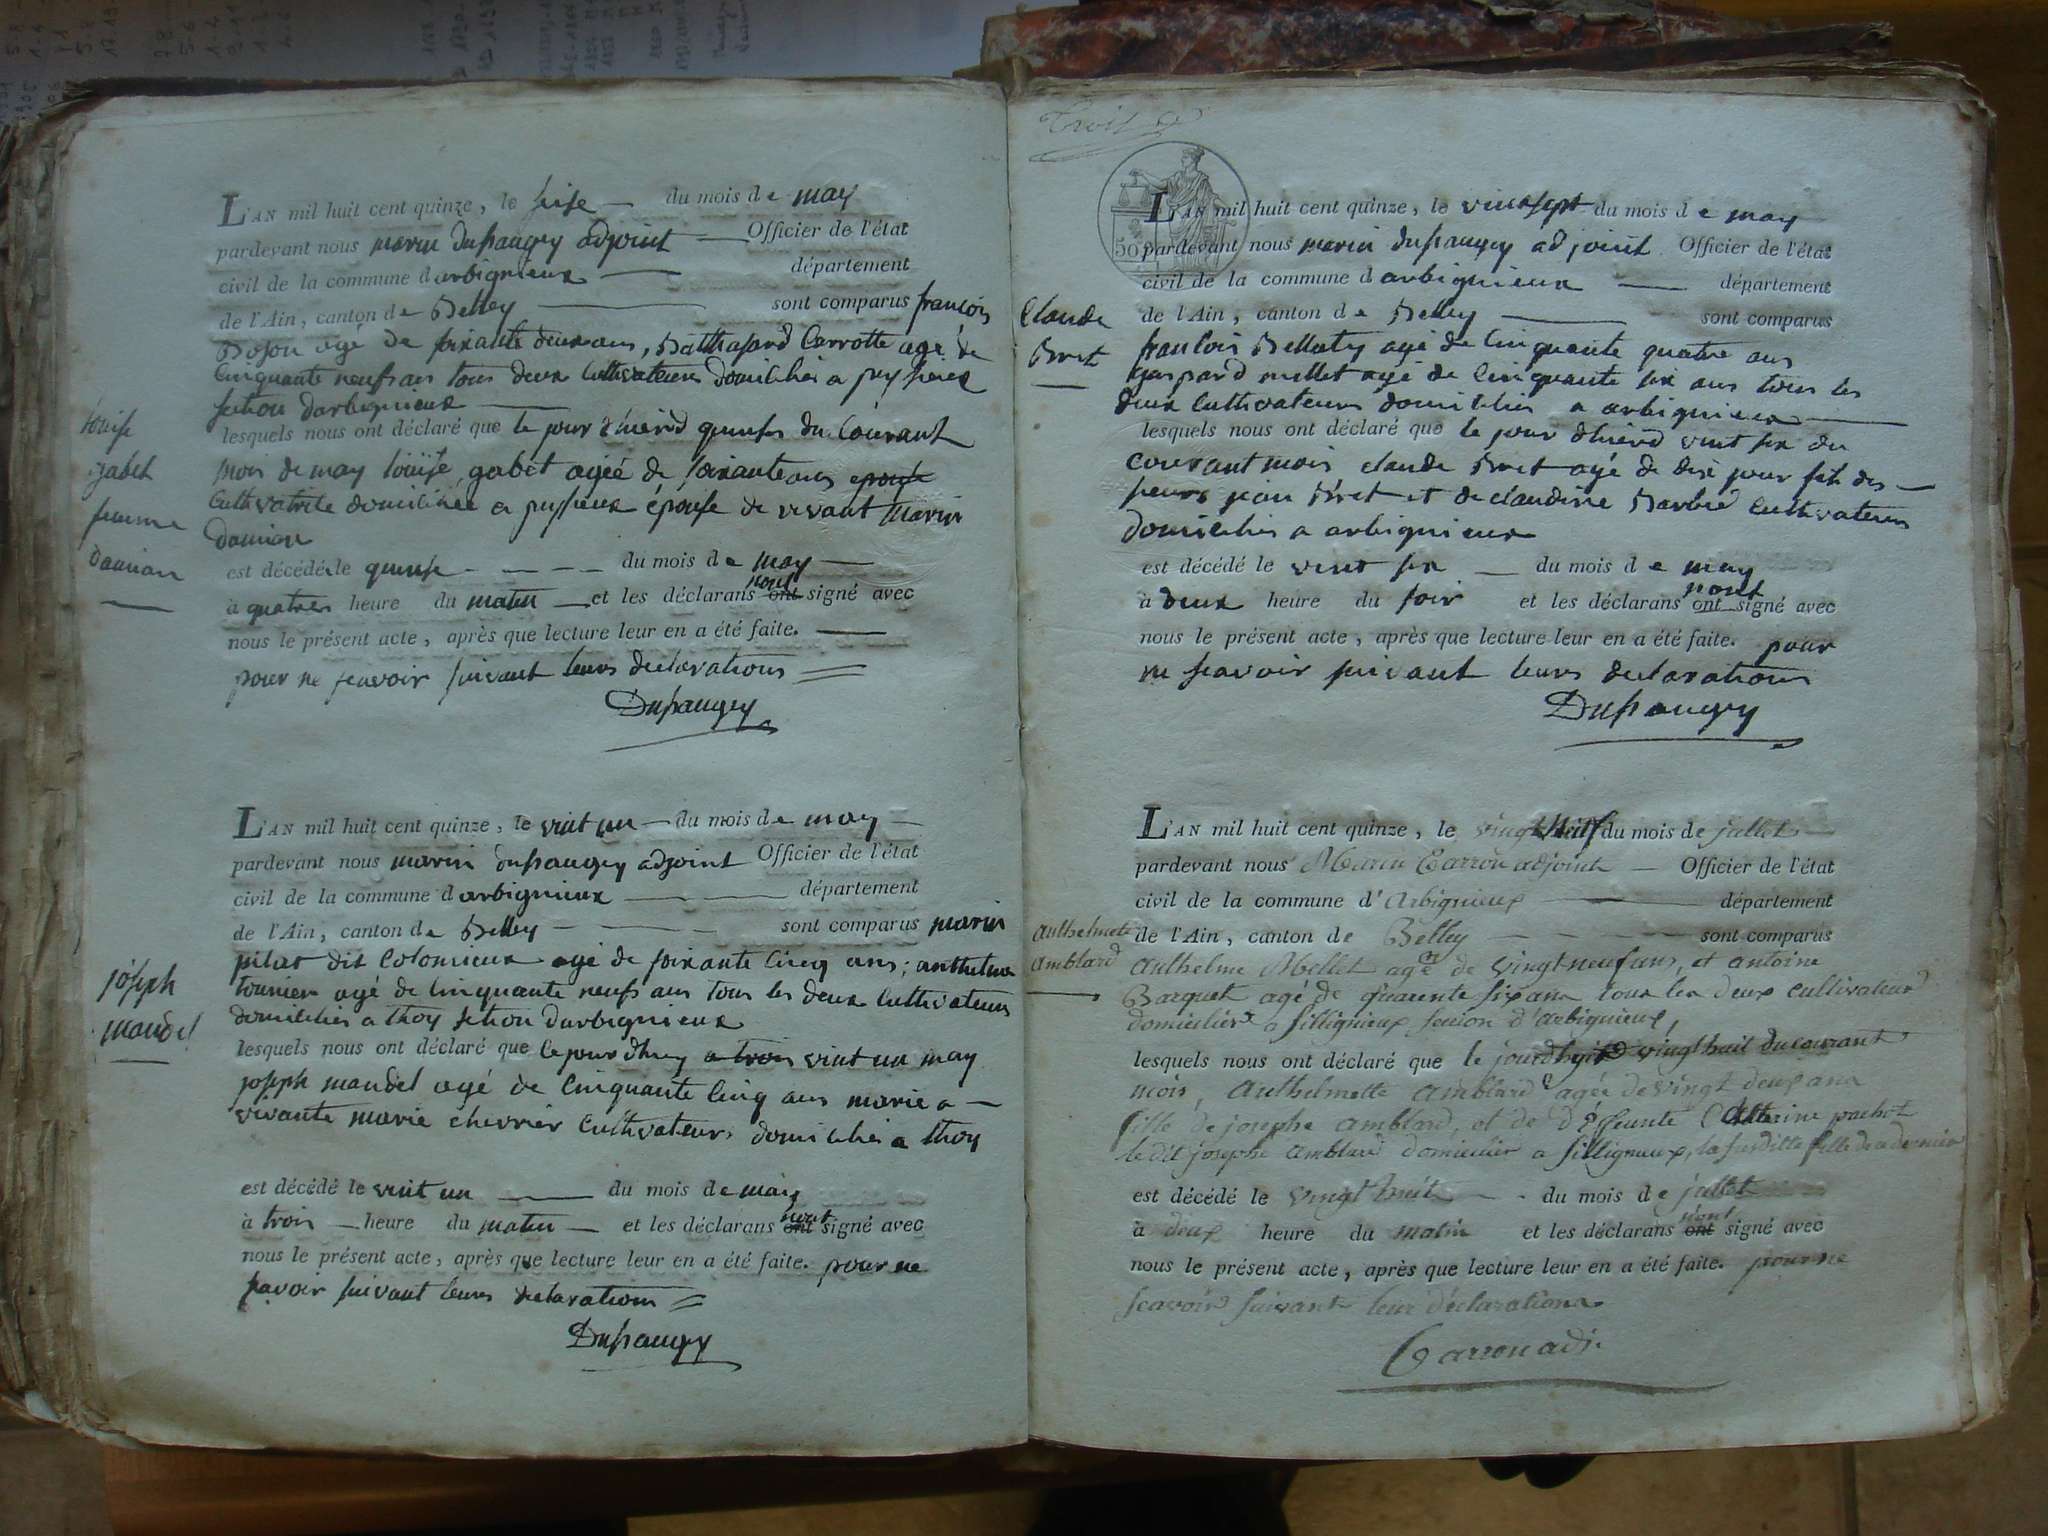 louise
gabet
femme
damian
L'AN mil huit cent quinze, le seise du mois de may
pardevant nous marin dupaugey adjoint Officier de l'état
civil de la commune d arbignieux département
de l'Ain, canton de Belley sont comparus françois
Boson agé de soixante deux ans, Balthasard Carrotte agé de
cinquante neuf ans tous deux cultivateurs domiciliés a peyssieux
section d'arbignieux
lesquels nous ont déclaré que le jour d'hierd quinse du courant
mois de may louïse gabet agéé de soixante ans epouse
cultivatrite domiciliée a peyssieux épouse de vivant marin
damian
est décédé le quinse du mois de may
à quatres heure du matin et les déclarans nont ont signé avec
nous le présent acte, après que lecture leur en a été faite.
pour ne scavoir suivant leurs declarations
Dupaugey
joseph
mandel
L'AN mil huit cent quinze, le vint un du mois de may
pardevant nous marin dupaugey adjoint Officier de l'état
civil de la commune d arbignieux département
de l'Ain, canton de Belley sont comparus marin
pilat dit Colomieux agé de soixante cinq ans; anthelme
tournier agé de cinquante neufs ans tous les deux cultivateurs
domiciliés a thoy section d'arbignieux
lesquels nous ont déclaré que le jour dhuy a trois vint un may
joseph mandel agé de cinquante cinq ans marie a
vivante marie chevrier cultivateurs domiciliés a thoy
est décédé le vint un du mois de may
à trois heure du matin et les déclarans nont ont signé avec
nous le présent acte, après que lecture leur en a été faite. pour ne
savoir suivant leurs declarations
Dupaugey
Trois
50
Claude
Bret
L'AN mil huit cent quinze, le vint sept du mois de may
pardevant nous marin dupaugey adjoint Officier de l'état
civil de la commune d arbignieux département
de l'Ain, canton de Belley sont comparus
francois Bellaty agé de cinquante quatre ans
gaspard mellet agé de cinquante six ans tous les
deux cultivateurs domiciliés a arbignieux
lesquels nous ont déclaré que le jour dhierd vint six du
courant mois claude Bret agé de dix jour fils des
sieurs jean Bret et de claudine Barbié cultivateurs
domiciliés a arbignieux
est décédé le vint six du mois de may
à deux heure du soir et les déclarans nont ont signé avec
nous le présent acte, après que lecture leur en a été faite. pour
ne scavoir suivant leurs declarations
Dupaugey
Anthelmete
Amblard
L'AN mil huit cent quinze, le vingt neuf du mois de jullet
pardevant nous Marin Carron adjoint Officier de l'état
civil de la commune d' Arbignieux département
de l'Ain, canton de Belley sont comparus
Anthelme Mellet agé de vingt neuf ans, et antoine
Barquet agé de quarente six ans tous les deux cultivateurs
domiciliers a sillignieux section d'arbignieux,
lesquels nous ont déclaré que le jourdhyierd vingt huit du courant
mois, Anthelmette Amblard agée de vingt deux ans
fille de josephe amblard, et de déffeunte Catterine pochet
ledit josephe amblard domicilier a sillignieux, la susditte fille de ce dernier
est décédé le vingt huit du mois de jullet
à deux heure du matin et les déclarans nont ont signé avec
nous le présent acte, après que lecture leur en a été faite. pour ne
scavoir suivant leur déclarations
Carron adj.